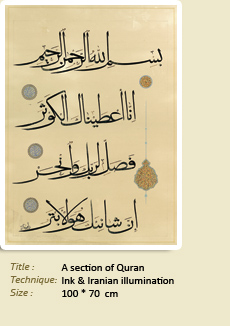 بسم الله الرحمن الرحیم
انا اعطیناک الکوثر
فصل لربک وانحر
ان شانئک هو الابتر
Title : A section of Quran
Technique: Ink & Iranian illumination
Size : 100 * 70 cm